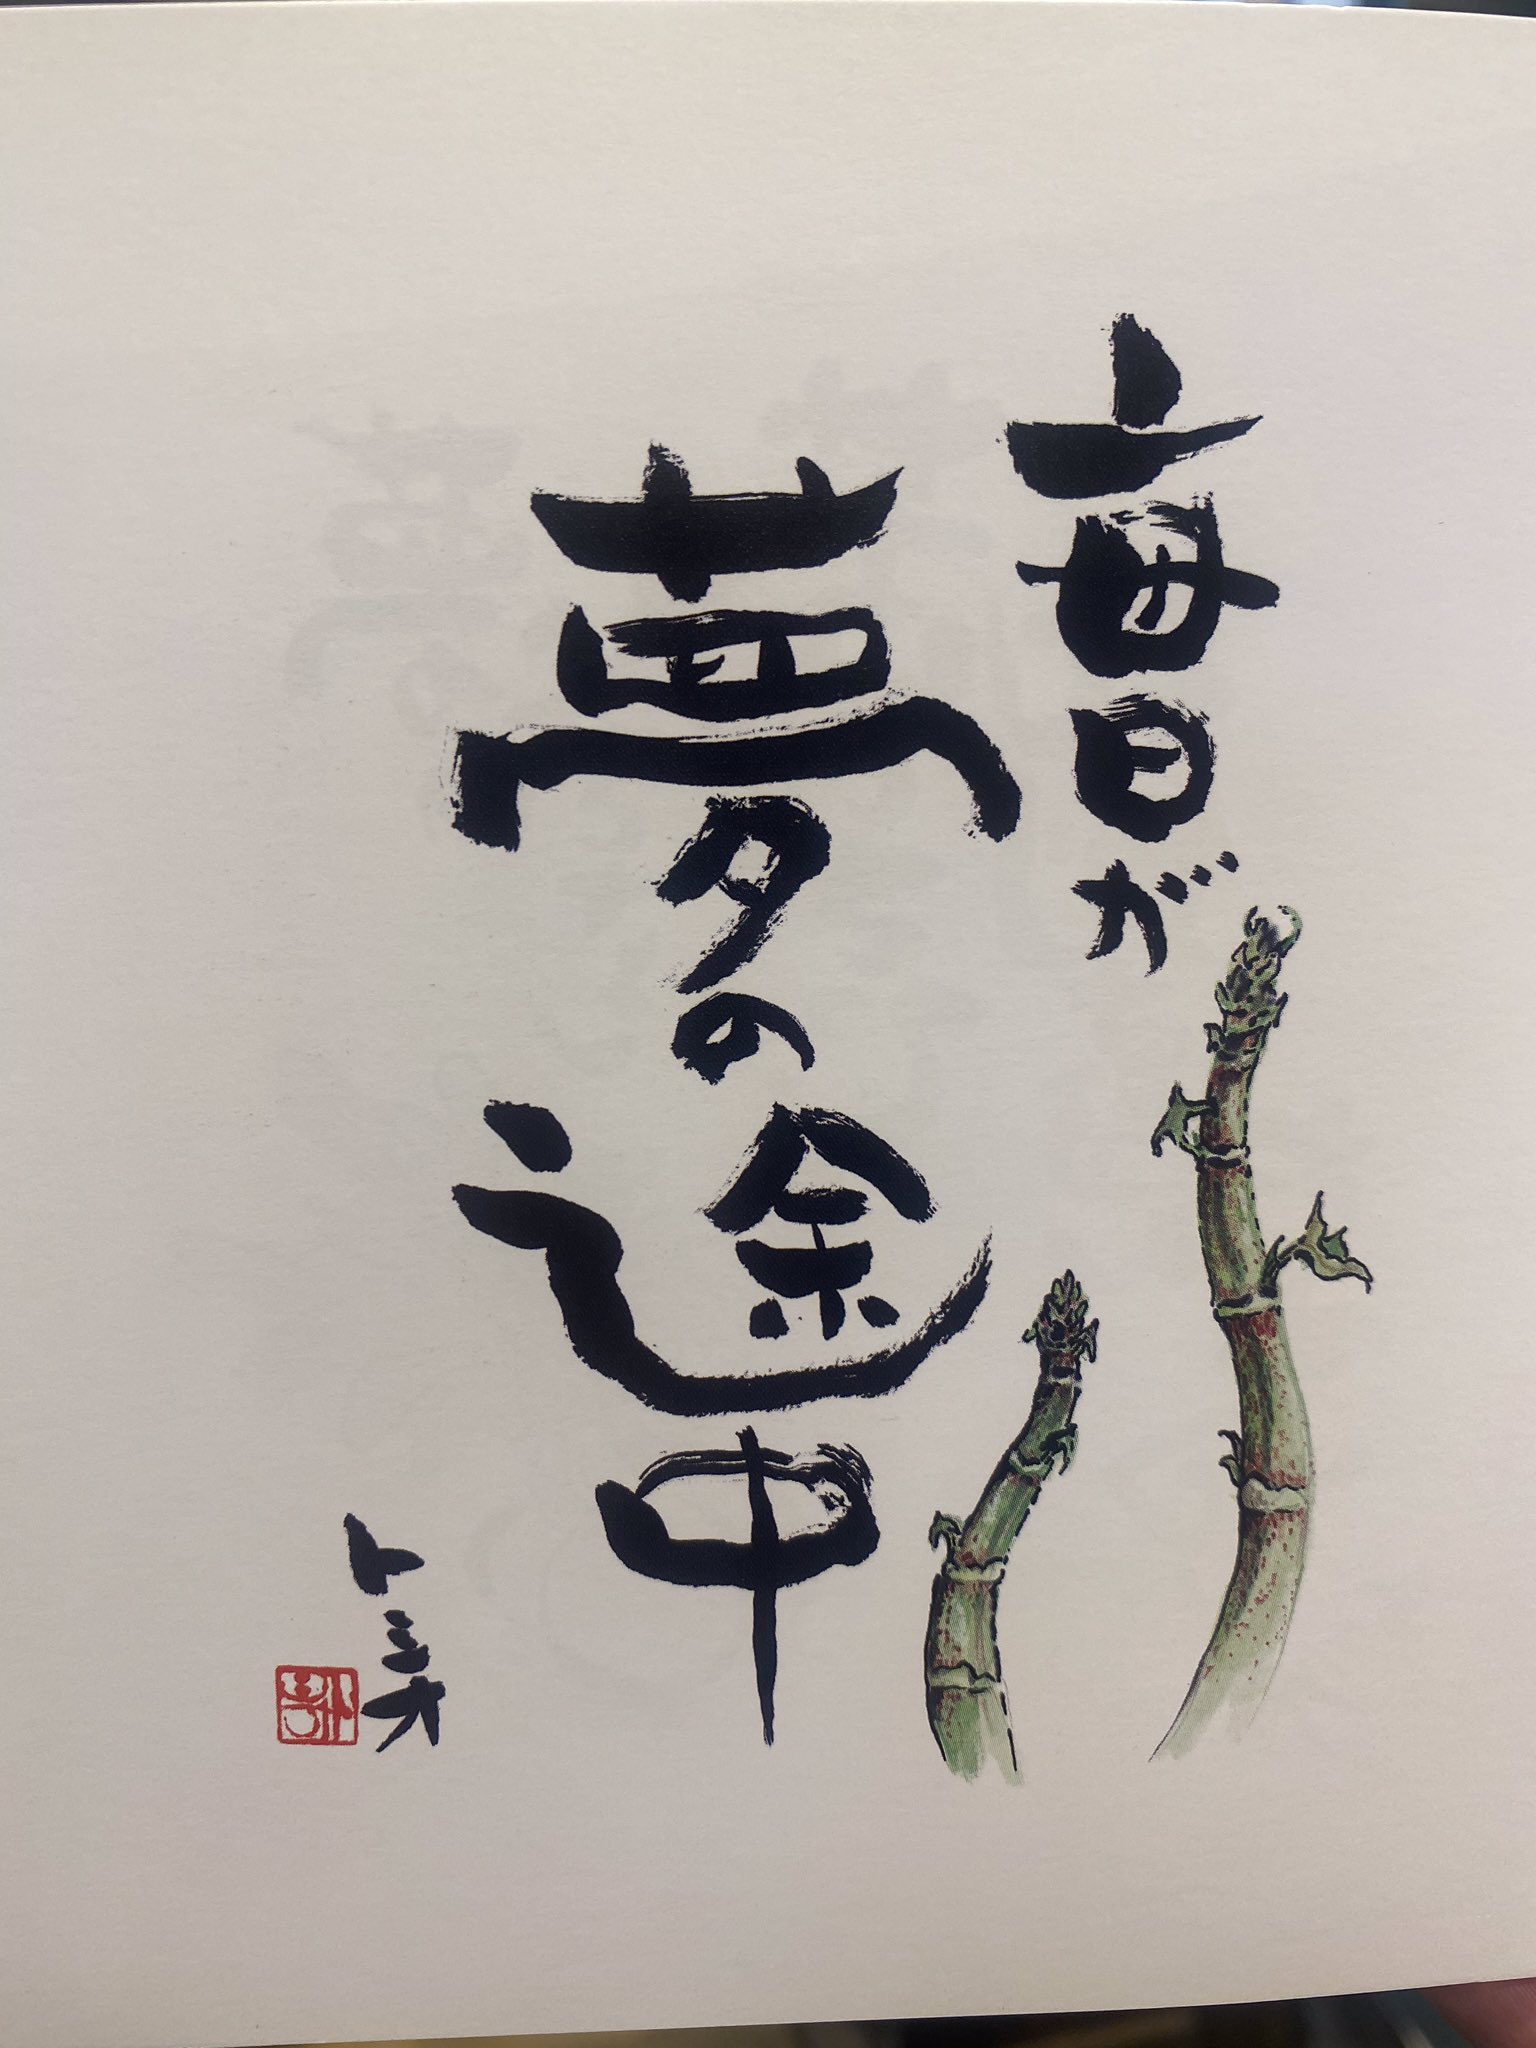 毎日が
夢の途中
トミオ